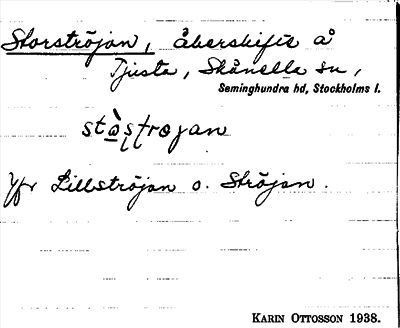 Storströjan, åkerskifte å
Tjusta, Skånella sn,
Seminghundra hd, Stockholms l.
Jfr Lillströjan o. Ströjan.
KARIN OTTOSSON 1938.